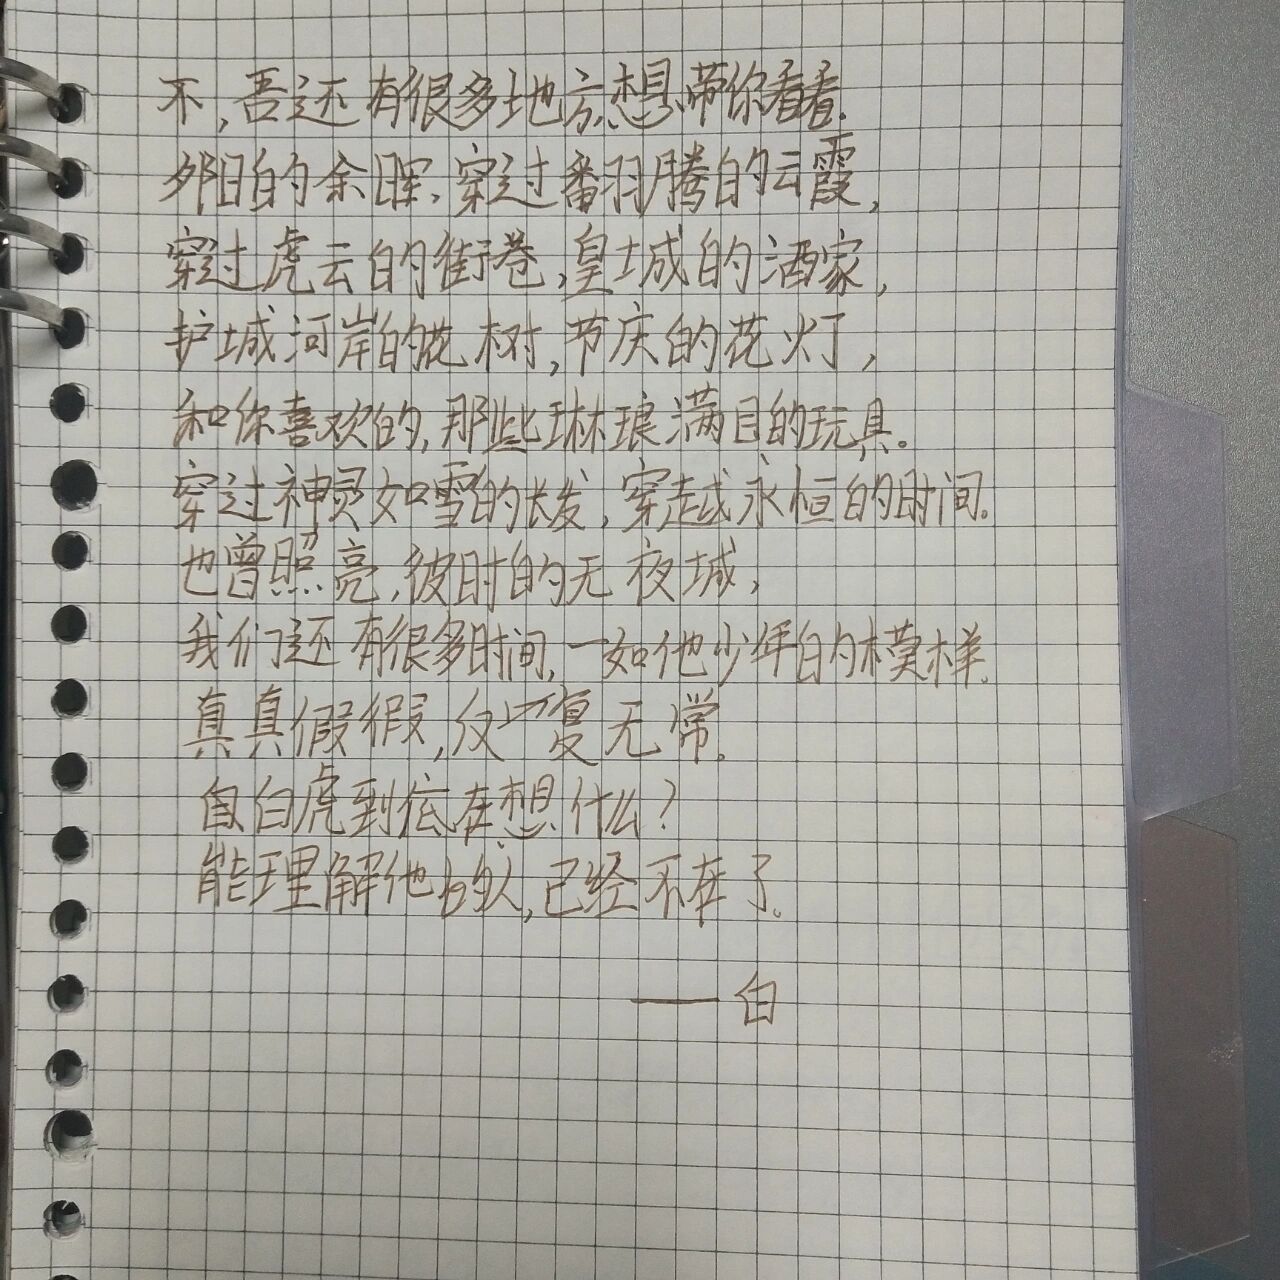 不,吾还有很多地方想带你看看.
夕阳的余晖、穿过翻腾的云霞,
穿过虎云的街巷,皇城的酒家,
护城河岸的花树,节庆的花灯,
和你喜欢的,那些琳琅满目的玩具。
穿过神灵如雪的长发,穿越永恒的时间。
也曾照亮,彼时的无夜城,
我们还有很多时间,一如他少年的模样。
真真假假,反复无常。
白虎到底在想什么?
能理解他的人,已经不在了。
——白